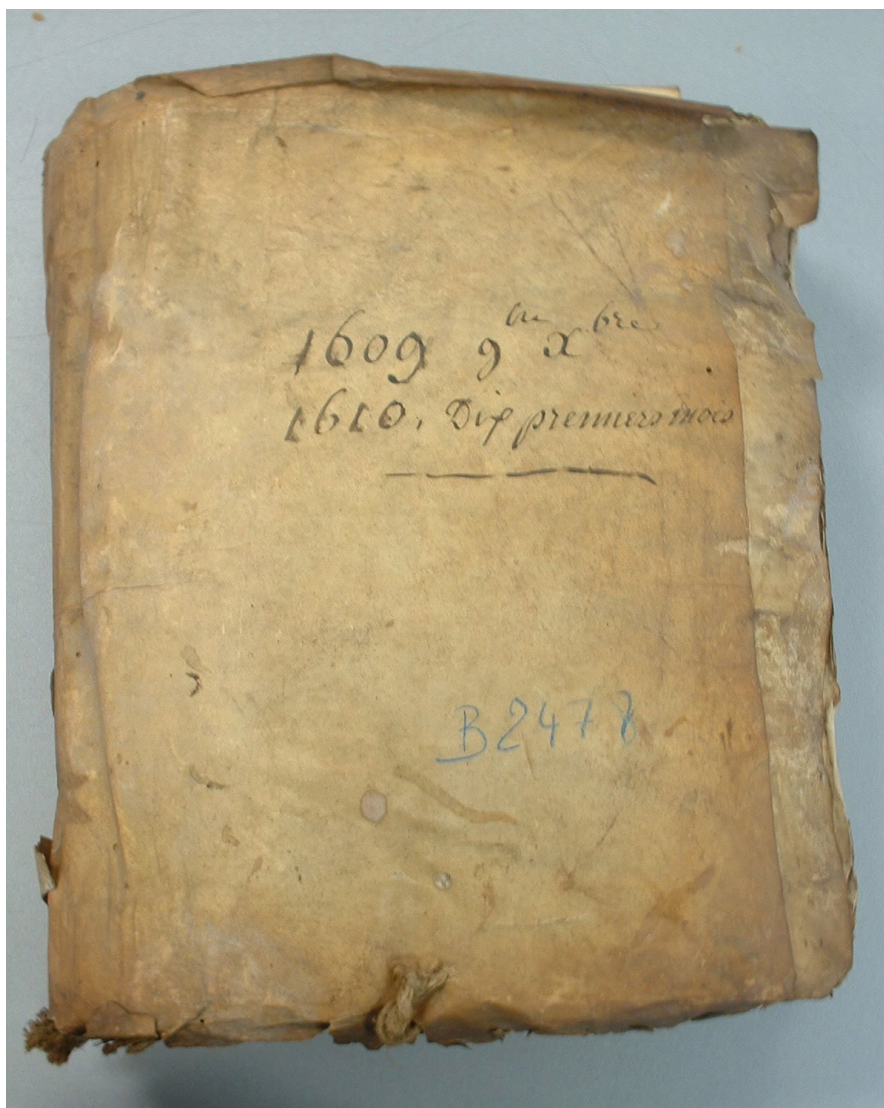 1609 9bre Xbre
1610. Dix premiers mois
B2478